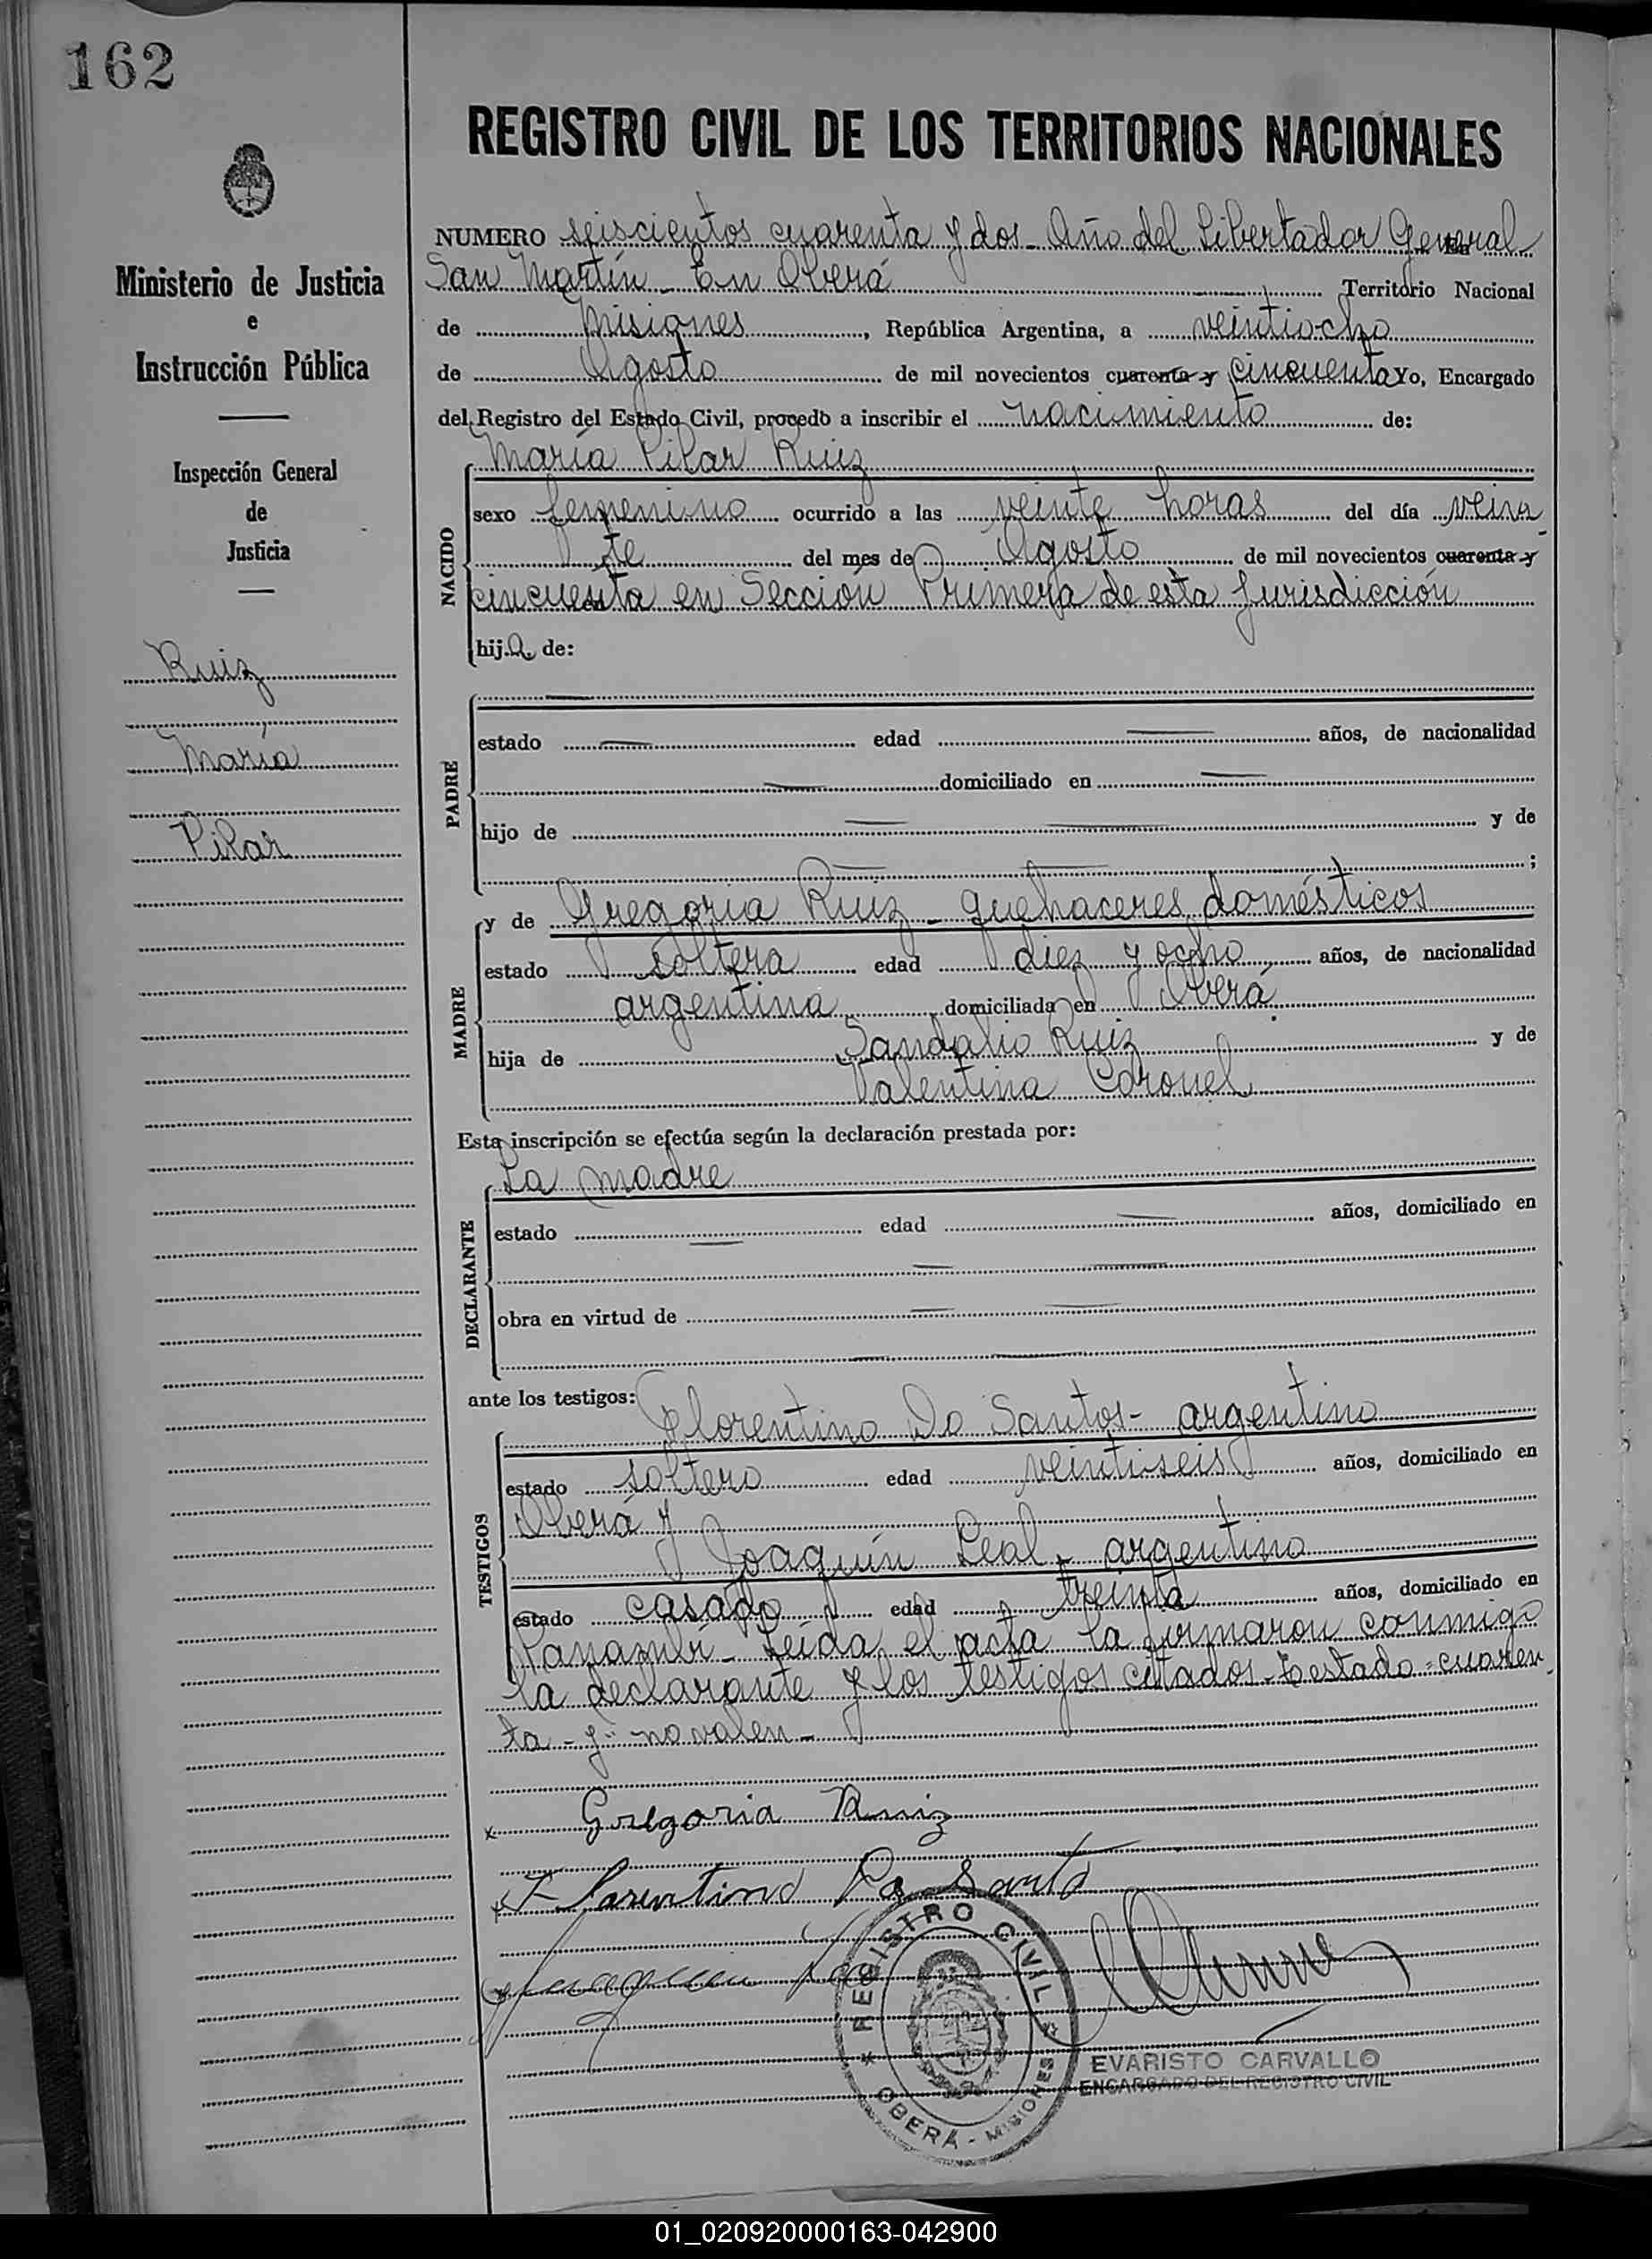 162
REGISTRO CIVIL DE LOS TERRITORIOS NACIONALES
Ministerio de Justicia
e
Instrucción Pública
Inspección General
de
Justicia
Ruiz
María
Pilar
NUMERO seiscientos cuarenta y dos - Año del Libertador General
San Martín - En Oberá Territorio Nacional
de Misiones, República Argentina, a veintiocho
de Agosto de mil novecientos cuarenta y cincuenta Yo, Encargado
del Registro del Estado Civil, procedo a inscribir el nacimiento de:
María Pilar Ruiz
NACIDO
sexo femenino ocurrido a las veinte horas del día vein
te del mes de Agosto de mil novecientos cuarenta y
cincuenta en Sección Primera de esta Jurisdicción
hija de:
PADRE
estado — edad — años, de nacionalidad
— domiciliado en —
hijo de — y de
— ;
MADRE
y de Gregoria Ruiz - quehaceres domésticos
estado soltera edad diez y ocho años, de nacionalidad
argentina domiciliada en Oberá
hija de Sandalio Ruiz y de
Valentina Coronel
Esta inscripción se efectúa según la declaración prestada por:
La madre
DECLARANTE
estado — edad — años, domiciliado en
obra en virtud de —
ante los testigos:
Florentino Do Santos - argentino
TESTIGOS
estado soltero edad veintiseis años, domiciliado en
Oberá y
Joaquín Leal - argentino
estado casado edad treinta años, domiciliado en
Panambí - Leída el acta la firmaron conmigo
la declarante y los testigos citados - Testado = cuaren
ta - y - no valen -
x Gregoria Ruiz
x Florentino Do Santo
REGISTRO CIVIL
OBERÁ - MISIONES
EVARISTO CARVALLO
ENCARGADO DEL REGISTRO CIVIL
01_020920000163-042900